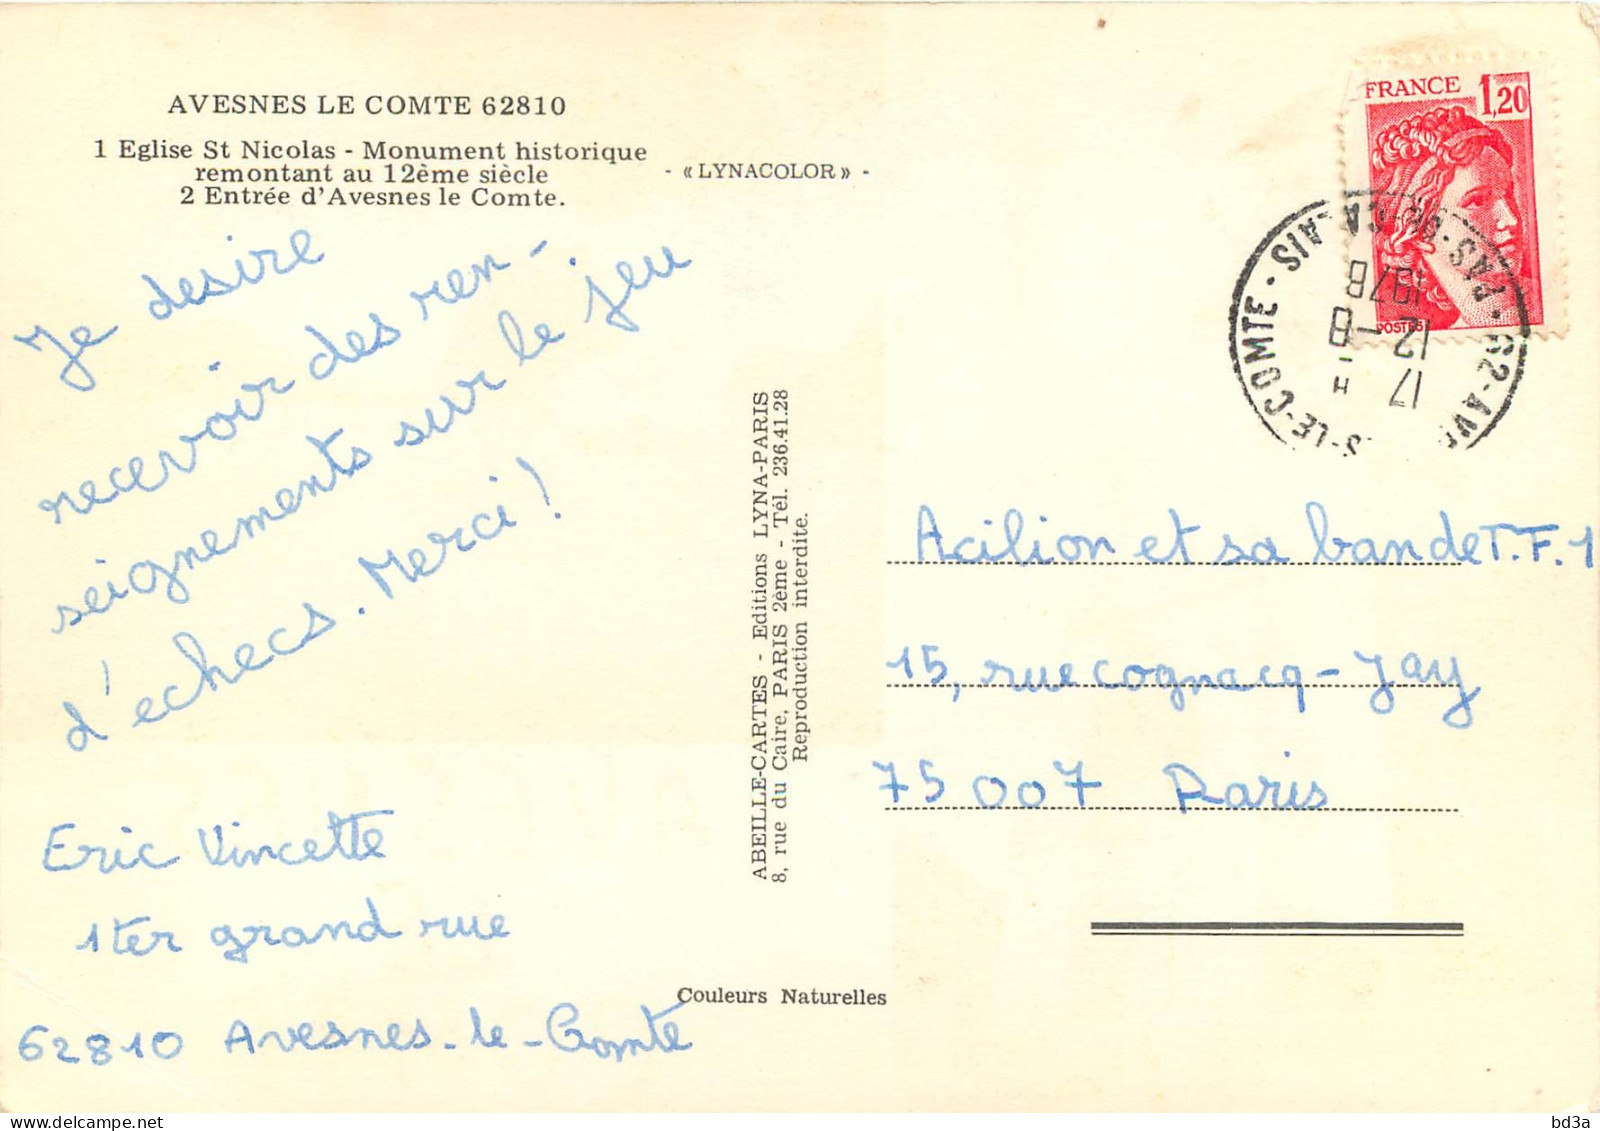 AVESNES LE COMTE 62810
1 Eglise St Nicolas - Monument historique
remontant au 12ème siècle
2 Entrée d'Avesnes le Comte.
- « LYNACOLOR » -
Je desire
recevoir des ren-
seignements sur le jeu
d'echecs. Merci !
Eric Vincette
1ter grand rue
62810 Avesnes-le-Comte
ABEILLE-CARTES - Editions LYNA-PARIS
8, rue du Caire, PARIS 2ème - Tél. 236.41.28
Reproduction interdite.
Couleurs Naturelles
FRANCE 1,20
POSTES
62-AV
S-LE-COMTE · PAS-DE-CALAIS
17 H
12 - 8
1978
Acilion et sa bande T.F.1
15, rue cognacq-Jay
75007 Paris
delcampe.net
bd3a